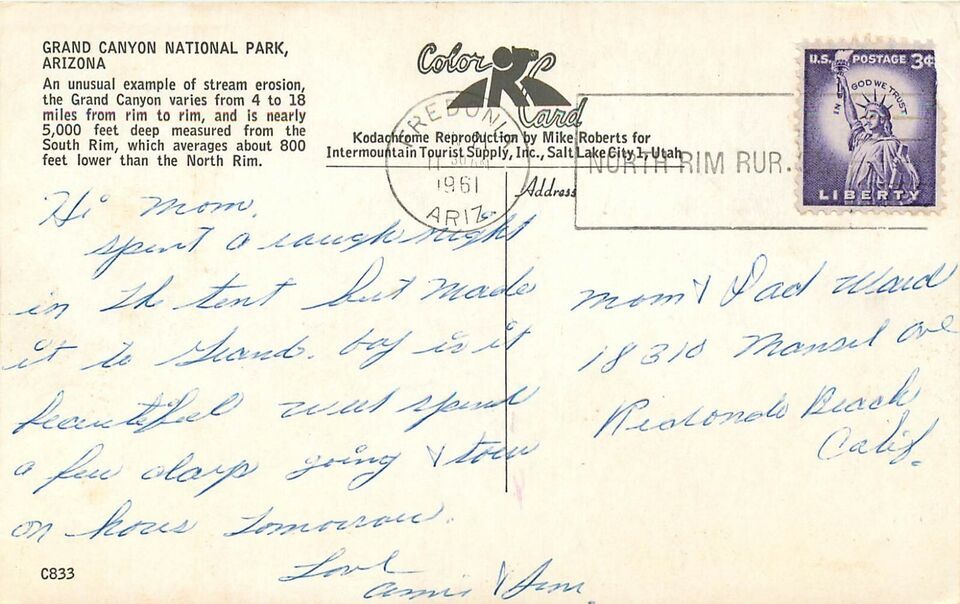 GRAND CANYON NATIONAL PARK,
ARIZONA
An unusual example of stream erosion,
the Grand Canyon varies from 4 to 18
miles from rim to rim, and is nearly
5,000 feet deep measured from the
South Rim, which averages about 800
feet lower than the North Rim.
Color
Card
Kodachrome Reproduction by Mike Roberts for
Intermountain Tourist Supply, Inc., Salt Lake City 1, Utah
Address
FREDONIA
1961
ARIZ.
NORTH RIM RUR.
U.S. POSTAGE 3¢
IN GOD WE TRUST
LIBERTY
Hi Mom,
spent a rough night
in the tent but made
it to Grand. boy is it
beautiful will spend
a few days going & tour
on horse tomorrow.
Love
& Jim
Mom & Dad Ward
18310 Mansel Ave
Redondo Beach
Calif.
C833